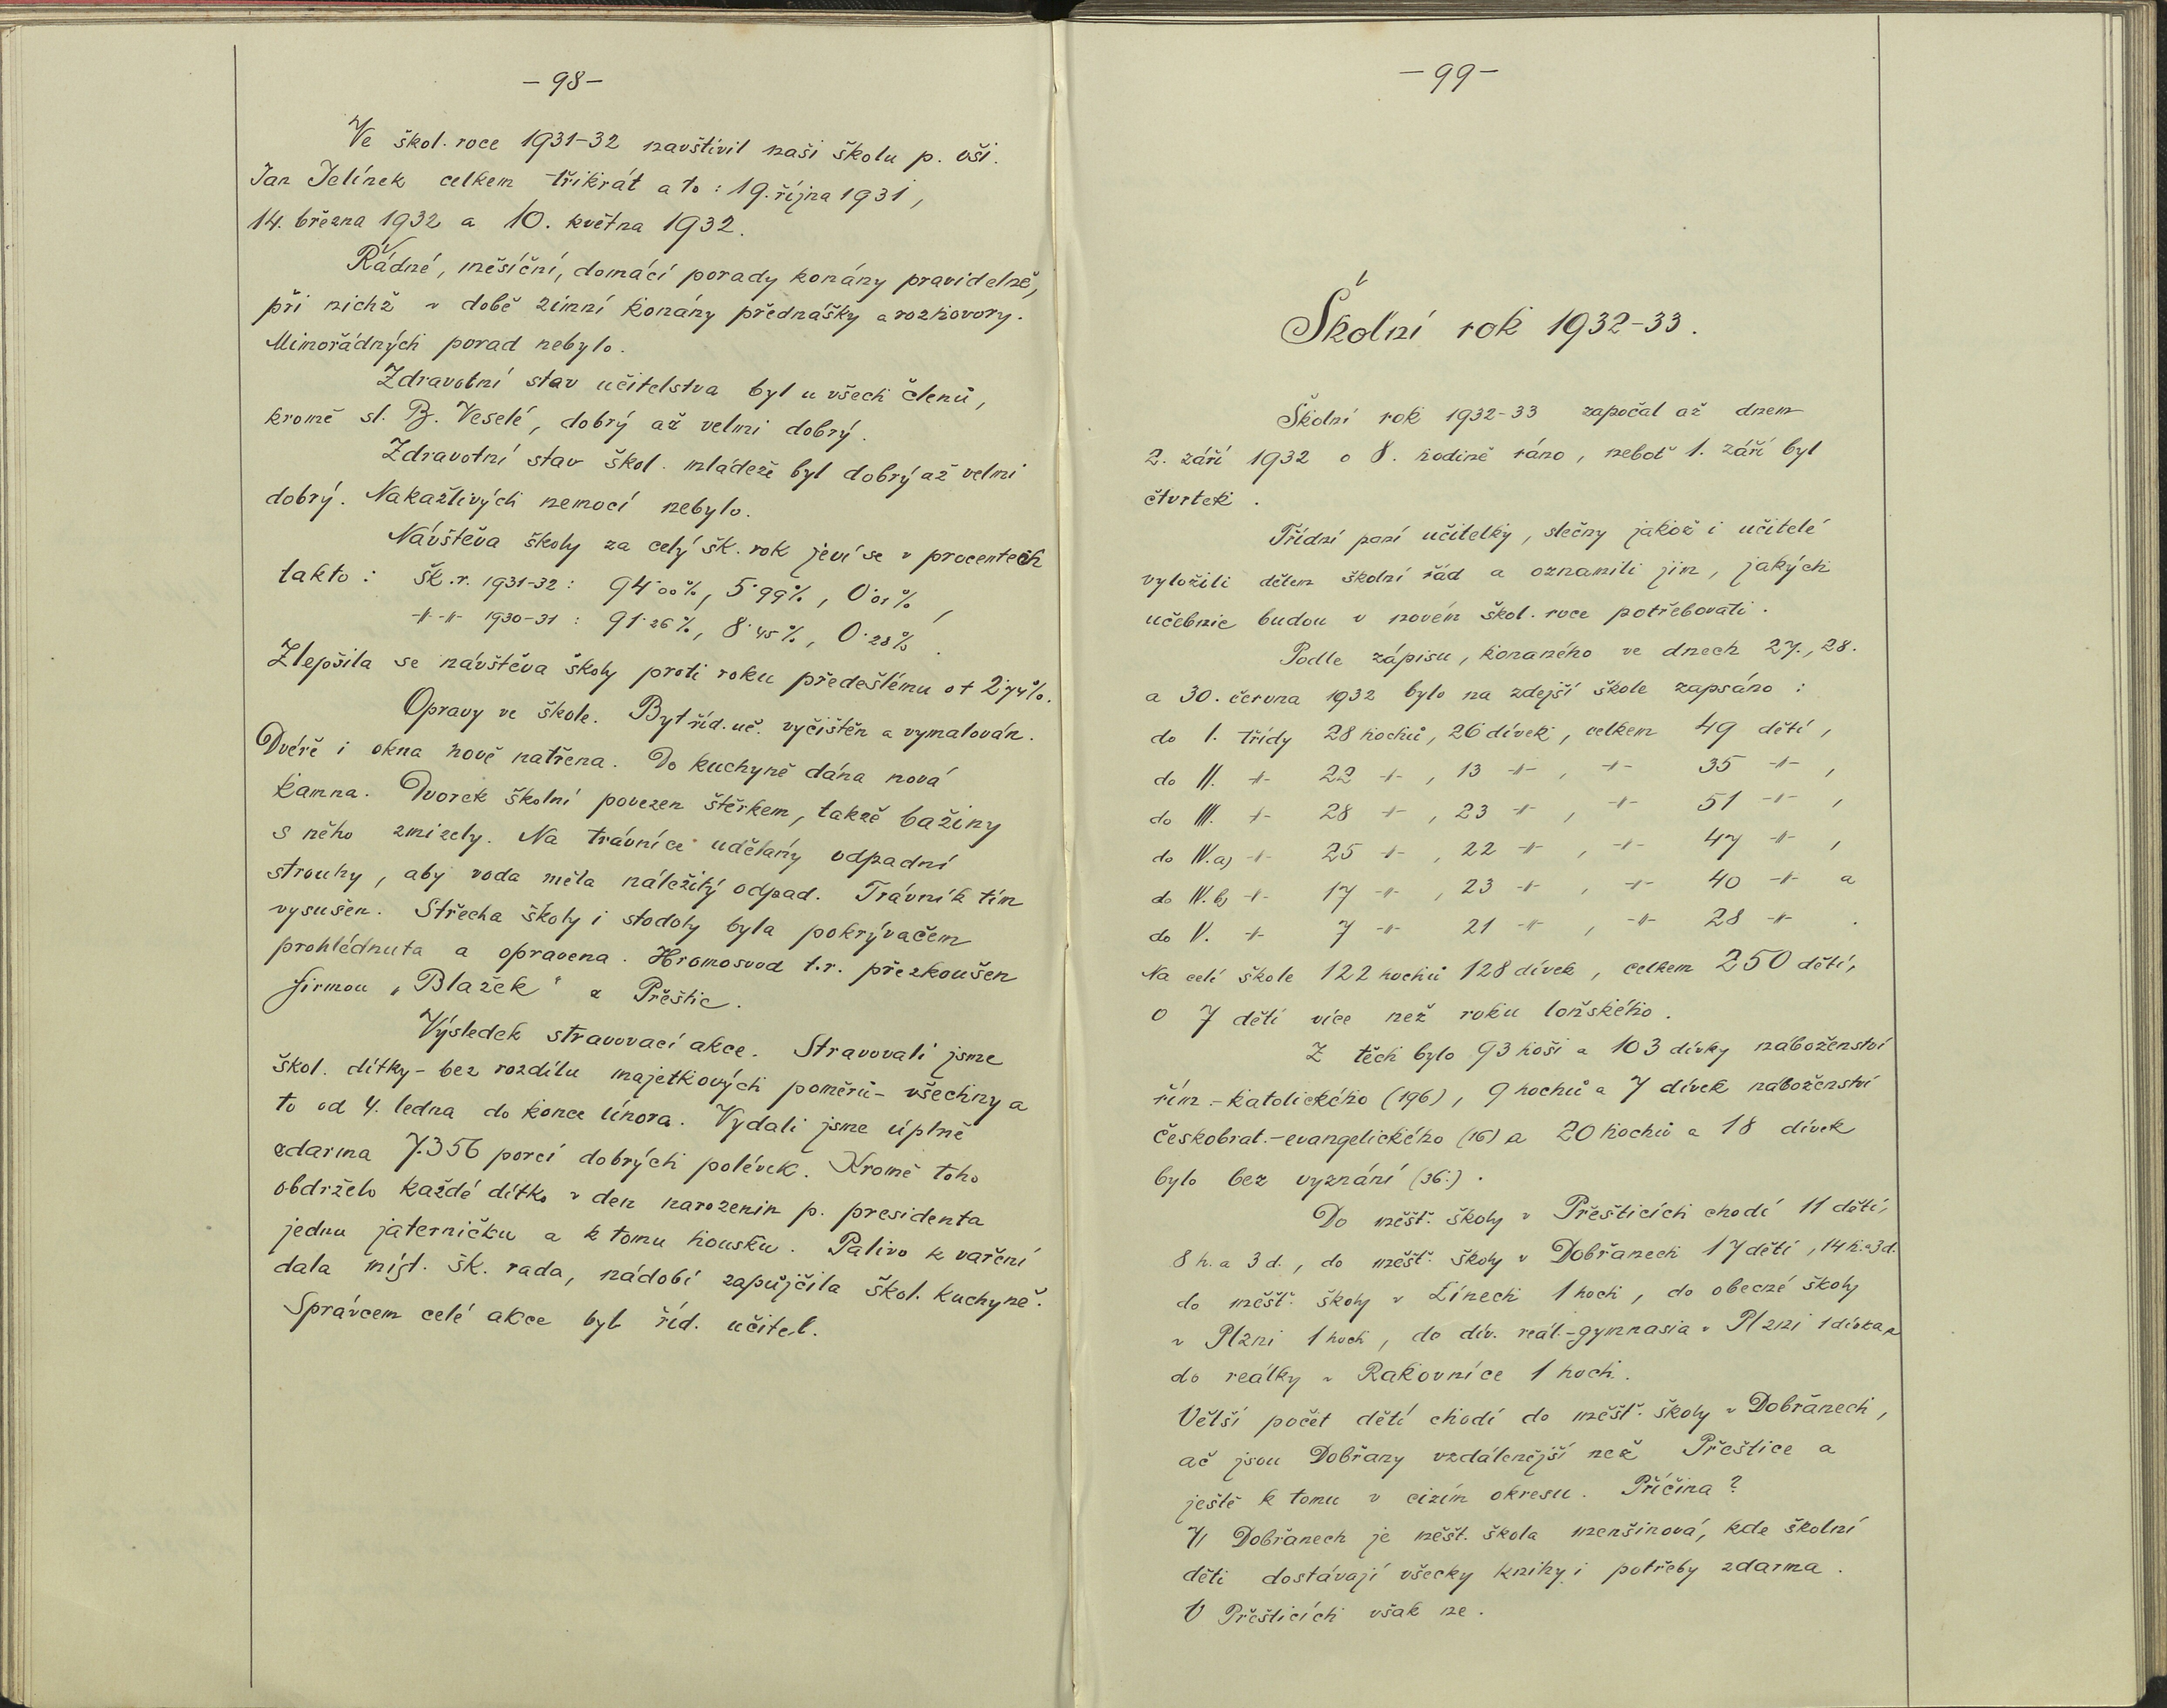 - 98 -
Ve škol. roce 1931-32 navštívil naši školu p. oši.
Jan Jelínek celkem třikrát a to: 19. října 1931,
14. března 1932 a 10. května 1932.
Řádné, měsíční, domácí porady konány pravidelně,
při nichž v době zimní konány přednášky a rozhovory.
Mimořádných porad nebylo.
Zdravotní stav učitelstva byl u všech členů,
kromě sl. B. Veselé, dobrý až velmi dobrý.
Zdravotní stav škol. mládeže byl dobrý až velmi
dobrý. Nakažlivých nemocí nebylo.
Návštěva školy za celý šk. rok jeví se v procentech
takto: šk. r. 1931-32: 94·00%, 5·99%, 0·01%,
-"- -"- 1930-31: 91·26%, 8·45%, 0·28%.
Zlepšila se návštěva školy proti roku předešlému o + 2·74%.
Opravy ve škole. Byt říd. uč. vyčištěn a vymalován.
Dvéře i okna nově natřena. Do kuchyně dána nová
kamna. Dvorek školní povezen štěrkem, takže bažiny
s něho zmizely. Na trávníce udělány odpadní
strouhy, aby voda měla náležitý odpad. Trávník tím
vysušen. Střecha školy i stodoly byla pokrývačem
prohlédnuta a opravena. Hromosvod t.r. přezkoušen
firmou „Blažek" z Přeštic.
Výsledek stravovací akce. Stravovali jsme
škol. dítky - bez rozdílu majetkových poměrů - všechny a
to od 4. ledna do konce února. Vydali jsme úplně
zdarma 7.356 porcí dobrých polévek. Kromě toho
obdrželo každé dítko v den narozenin p. presidenta
jednu jaterničku a k tomu housku. Palivo k vaření
dala míst. šk. rada, nádobí zapůjčila škol. kuchyně.
Správcem celé akce byl říd. učitel.
- 99 -
Školní rok 1932-33.
Školní rok 1932-33 započal až dnem
2. září 1932 o 8. hodině ráno, neboť 1. září byl
čtvrtek.
Třídní paní učitelky, slečny jakož i učitelé
vyložili dětem školní řád a oznamili jim, jakých
učebnic budou v novém škol. roce potřebovati.
Podle zápisu, konaného ve dnech 27., 28.
a 30. června 1932 bylo na zdejší škole zapsáno:
do I. třídy 28 hochů, 26 dívek, celkem 49 dětí,
do II. -"- 22 -"-, 13 -"-, -"- 35 -"-,
do III. -"- 28 -"-, 23 -"-, -"- 51 -"-,
do IV.a) -"- 25 -"-, 22 -"-, -"- 47 -"-,
do IV.b) -"- 17 -"-, 23 -"-, -"- 40 -"- a
do V. -"- 7 -"- 21 -"-, -"- 28 -"-.
Na celé škole 122 hochů 128 dívek, celkem 250 dětí,
o 7 dětí více než roku loňského.
Z těch bylo 93 hoši a 103 dívky náboženství
řím.-katolického (196), 9 hochů a 7 dívek náboženství
českobrat.-evangelického (16) a 20 hochů a 18 dívek
bylo bez vyznání (36.).
Do měšť. školy v Přešticích chodí 11 dětí,
8 h. a 3 d., do měšť. školy v Dobřanech 17 dětí, 14 h. a 3 d.
do měšť. školy v Línech 1 hoch, do obecné školy
v Plzni 1 hoch, do dív. reál.-gymnasia v Plzni 1 dívka a
do reálky v Rakovníce 1 hoch.
Větší počet dětí chodí do měšť. školy v Dobřanech,
ač jsou Dobřany vzdálenější než Přeštice a
ještě k tomu v cizím okresu. Příčina?
V Dobřanech je měšť. škola menšinová, kde školní
děti dostávají všecky knihy i potřeby zdarma.
V Přešticích však ne.